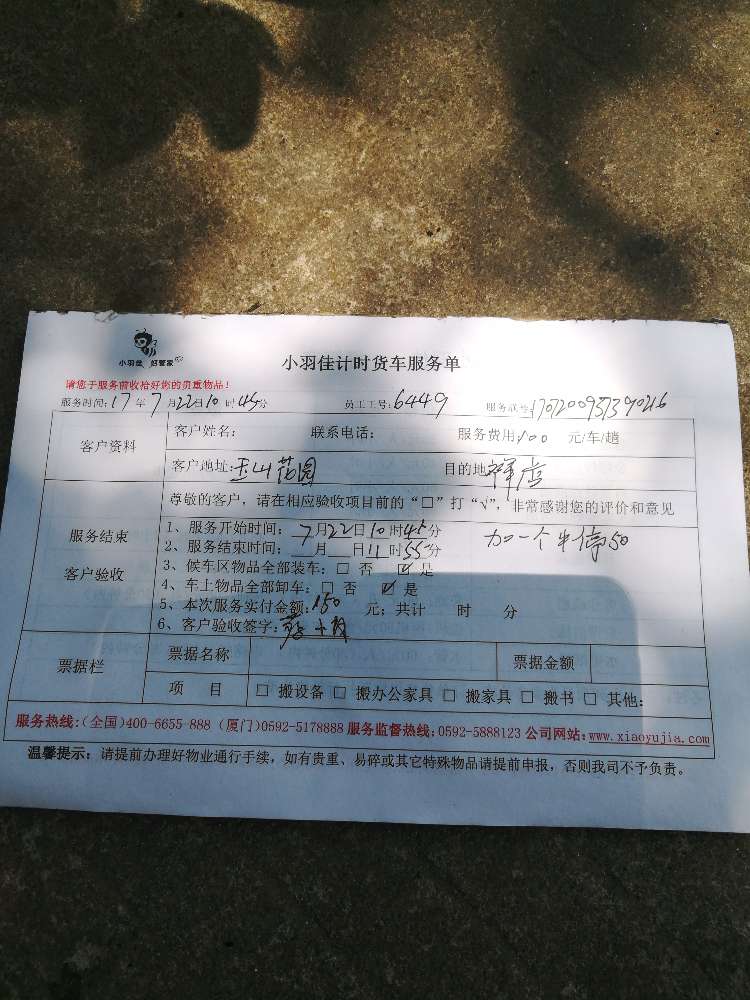 小羽佳 好管家
小羽佳计时货车服务单
请您于服务前收拾好您的贵重物品!
服务时间:17年7月22日10时45分 员工工号:6449 服务联号:
客户资料
客户姓名: 联系电话: 服务费用100 元/车/趟
客户地址:玉山花园 目的地 祥店
尊敬的客户，请在相应验收项目前的“□”打“√”，非常感谢您的评价和意见
服务结束
客户验收
1、服务开始时间:7月22日10时45分
2、服务结束时间: 月 日11时55分
3、候车区物品全部装车:□ 否 ☑ 是
4、车上物品全部卸车:□ 否 ☑ 是
5、本次服务实付金额:150 元;共计 时 分
6、客户验收签字:
加一个 停50
票据栏
票据名称 票据金额
项 目 □ 搬设备 □ 搬办公家具 □ 搬家具 □ 搬书 □ 其他:
服务热线:(全国)400-6655-888 (厦门)0592-5178888 服务监督热线:0592-5888123 公司网站:www.xiaoyujia.com
温馨提示：请提前办理好物业通行手续，如有贵重、易碎或其它特殊物品请提前申报，否则我司不予负责。